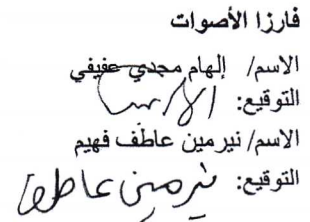 فارزا الأصوات
الاسم/ إلهام مجدي عفيفي
التوقيع:
الاسم/ نيرمين عاطف فهيم
التوقيع: نيرمين عاطف